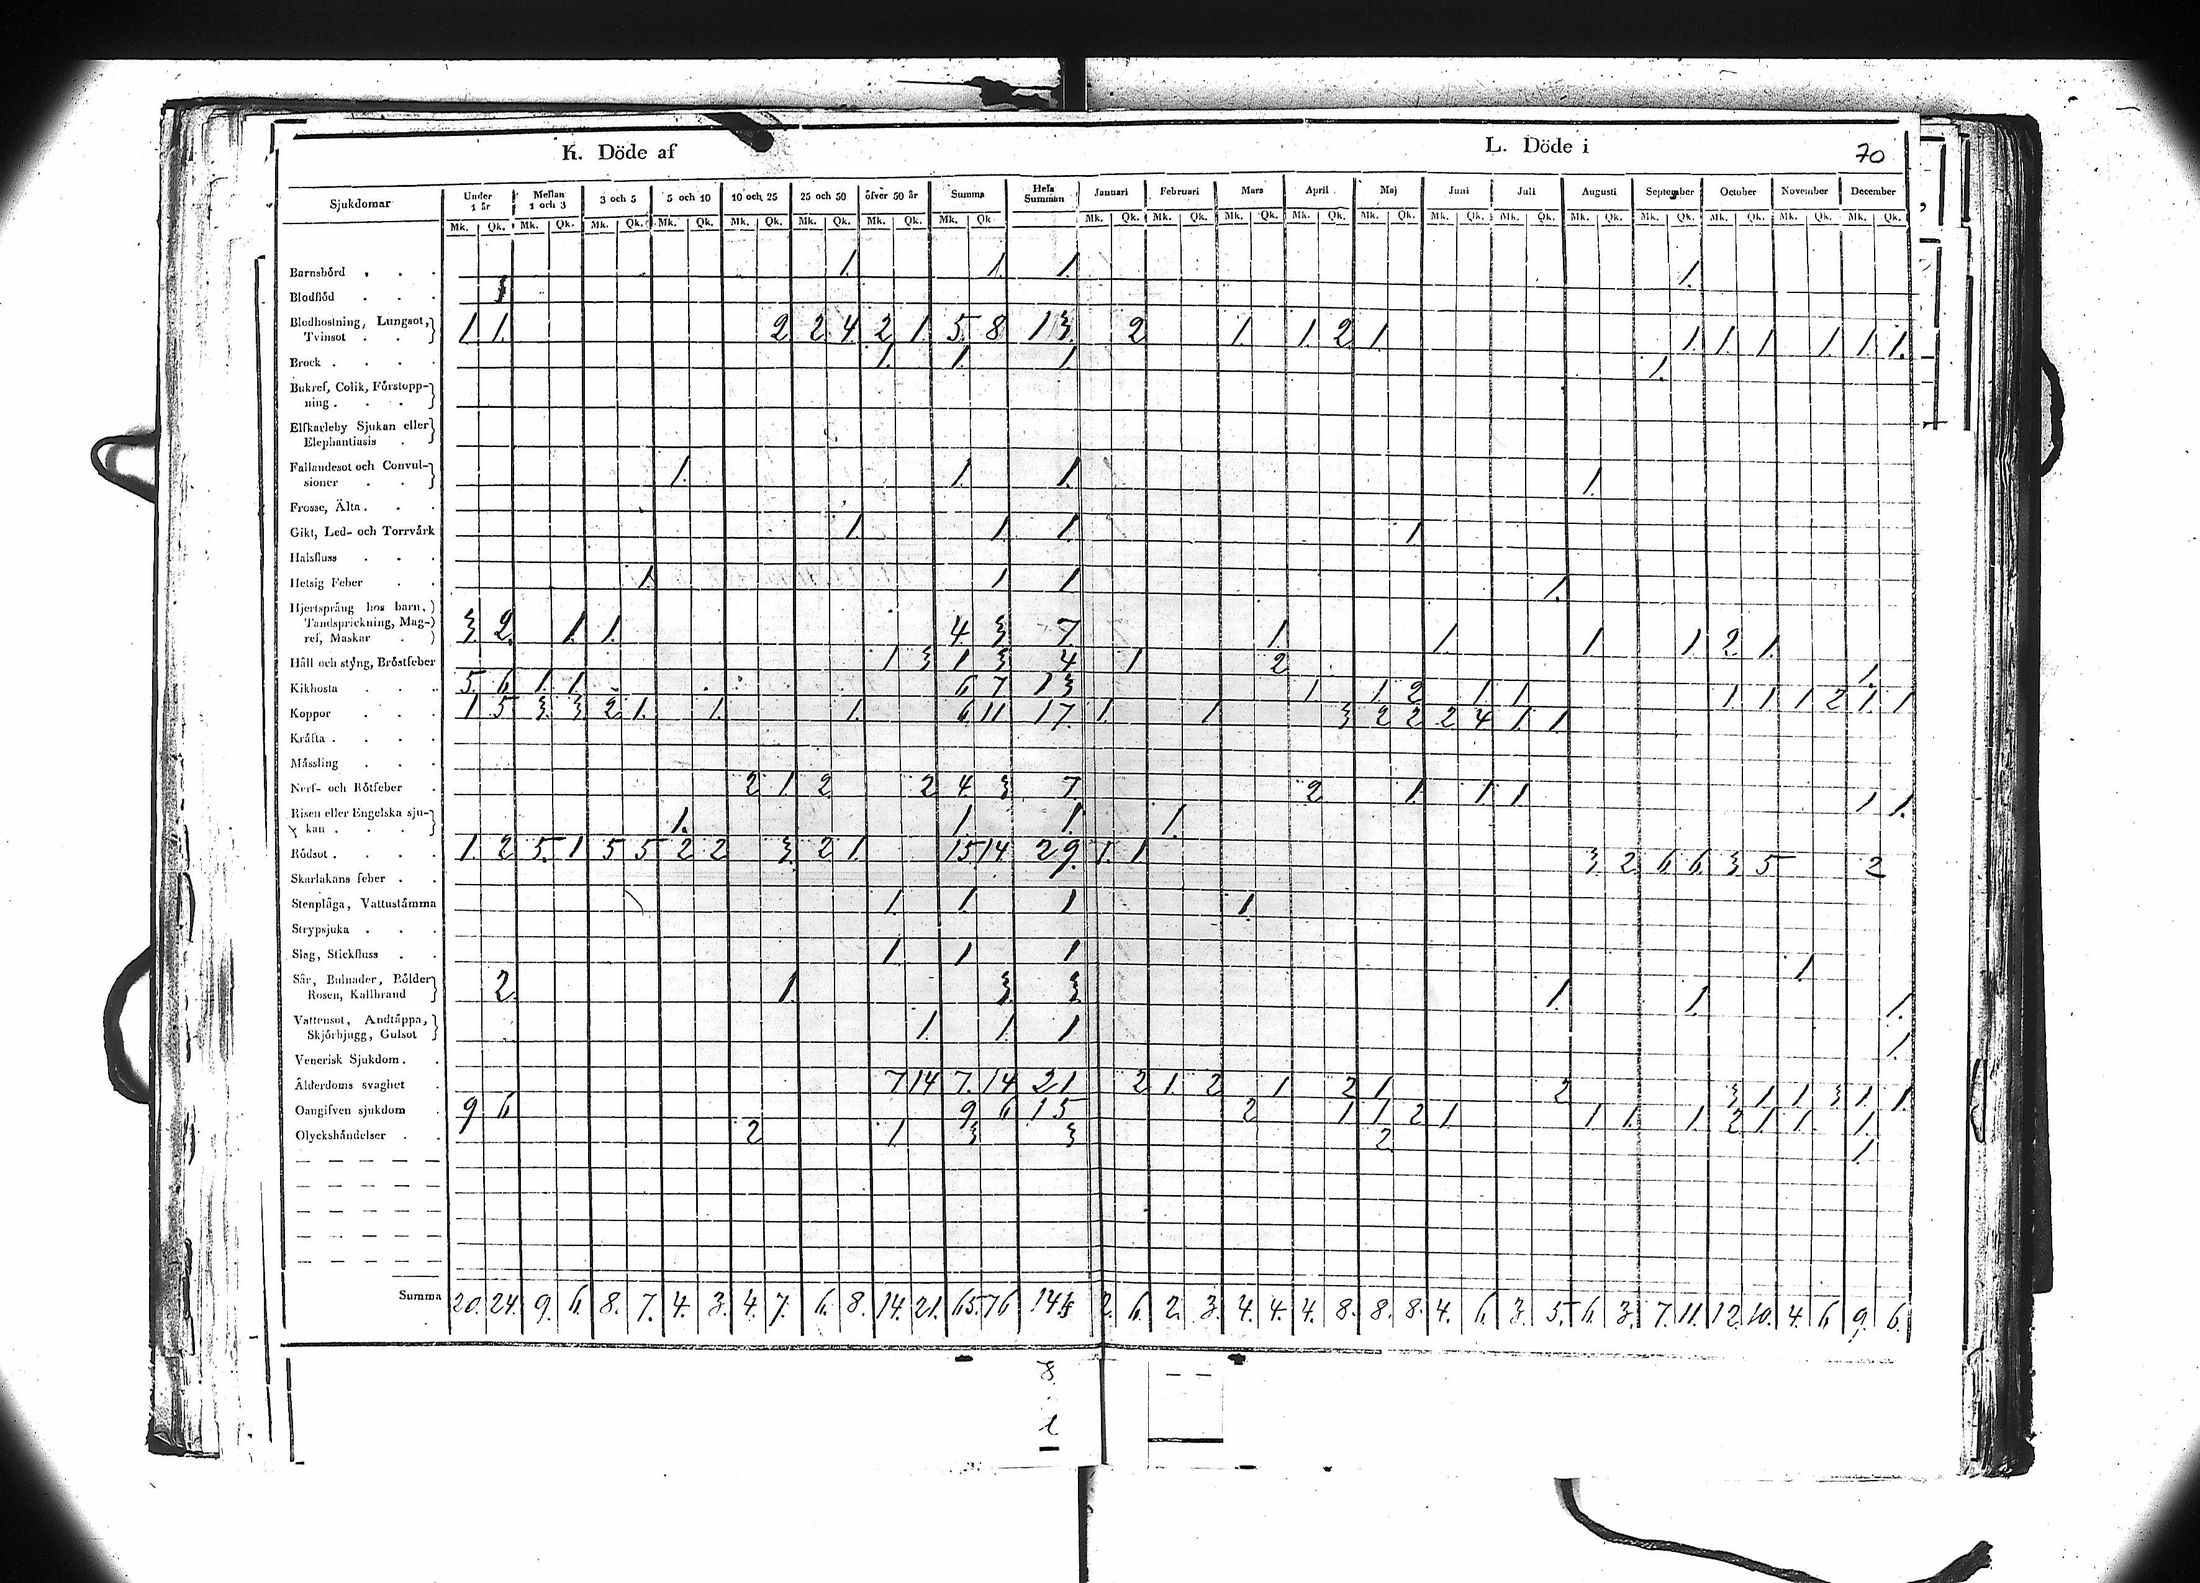 K. Döde af L. Döde i 70
Sjukdomar Under 1 år Mellan 1 och 3 3 och 5 5 och 10 10 och 25 25 och 50 öfver 50 år Summa Hela Summan Januari Februari Mars April Maj Juni Juli Augusti September October November December
Mk. Qk. Mk. Qk. Mk. Qk. Mk. Qk. Mk. Qk. Mk. Qk. Mk. Qk. Mk. Qk. Mk. Qk. Mk. Qk. Mk. Qk. Mk. Qk. Mk. Qk. Mk. Qk. Mk. Qk. Mk. Qk. Mk. Qk. Mk. Qk. Mk. Qk. Mk. Qk.
Barnsbörd . . . 1. 1. 1. 1.
Blodflöd . . .
Blodhostning, Lungsot,
Tvinsot . . 1. 1. 2 2 4 2 1 5. 8 13. 2 1. 1. 2 1. 1. 1. 1. 1. 1. 1.
Brock . . . . 1. 1. 1. 1.
Bukref, Colik, Förstopp-
ning . . .
Elfkarleby Sjukan eller
Elephantiasis .
Fallandesot och Convul-
sioner . . 1. 1. 1. 1.
Frosse, Älta . . .
Gikt, Led- och Torrvärk 1. 1. 1. 1.
Halsfluss . . .
Hetsig Feber . . 1. 1 1 1.
Hjertsprång hos barn,
Tandsprickning, Mag-
ref, Maskar . 3 2. 1. 1. 4. 3 7 1. 1. 1 1. 2. 1.
Håll och stÿng, Bröstfeber 1 3 1 3 4 1 2 1.
Kikhosta . . . 5. 6 1. 1 6 7 13 1 1. 2 1 1 1 1 1 2 1. 1
Koppor . . . 1 5 3. 3 2 1. 1. 1. 6 11 17. 1. 1 3 2 2 2 4 1. 1.
Kräfta . . . .
Mässling . . .
Nerf- och Rötfeber . 2 1. 2 2 4. 3 7. 2 1. 1 1 1 1.
Risen eller Engelska sju-
kan . . . . 1. 1. 1. 1.
Rödsot . . . . 1. 2 5. 1 5 5 2 2 3. 2 1. 15 14 29. 1. 1 3. 2 6 6. 3 5 2
Skarlakans feber . .
Stenplåga, Vattustämma 1. 1. 1 1.
Strypsjuka . . .
Slag, Stickfluss . . 1 1 1 1
Sår, Bulnader, Bölder
Rosen, Kallbrand 2. 1. 3. 3 1. 1. 1.
Vattensot, Andtäppa,
Skjörbjugg, Gulsot 1. 1. 1 1.
Venerisk Sjukdom . .
Ålderdoms svaghet . 7 14 7. 14 21 2 1. 2 1 2 1 2 3 1 1 3 1. 1.
Oangifven sjukdom . 9 6 9 6 15 2 1 1 2 1 1 1. 1. 2 1. 1. 1.
Olyckshändelser . . 2 1 3 3 2. 1.
Summa 20. 24. 9. 6. 8. 7. 4. 3. 4. 7. 6. 8. 14. 21. 65. 76 2. 6. 2. 3. 4. 4. 4. 8. 8. 8. 4. 6. 3. 5. 6. 3. 7. 11. 12. 10. 4. 6 9. 6.